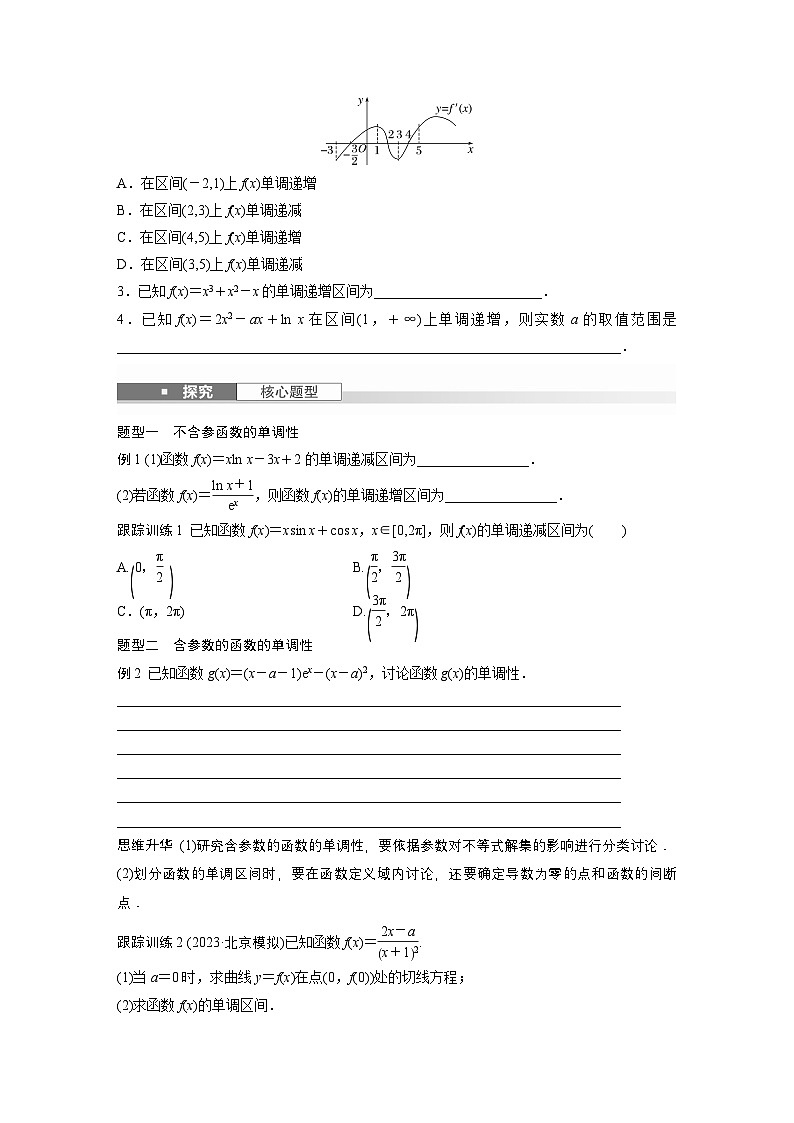 y
y=f′(x)
2 3 4
−3 −3/2 O 1 5 x
A．在区间(－2,1)上f(x)单调递增
B．在区间(2,3)上f(x)单调递减
C．在区间(4,5)上f(x)单调递增
D．在区间(3,5)上f(x)单调递减
3．已知f(x)＝x³＋x²－x的单调递增区间为________________________．
4．已知f(x)＝2x²－ax＋ln x在区间(1，＋∞)上单调递增，则实数a的取值范围是
________________________________________________________________________．
■ 探究 核心题型
题型一　不含参函数的单调性
例1 (1)函数f(x)＝xln x－3x＋2的单调递减区间为________________．
(2)若函数f(x)＝(ln x＋1)/eˣ，则函数f(x)的单调递增区间为________________．
跟踪训练1 已知函数f(x)＝xsin x＋cos x，x∈[0,2π]，则f(x)的单调递减区间为(　　)
A.(0，π/2) B.(π/2，3π/2)
C．(π，2π) D.(3π/2，2π)
题型二　含参数的函数的单调性
例2 已知函数g(x)＝(x－a－1)eˣ－(x－a)²，讨论函数g(x)的单调性．
________________________________________________________________________
________________________________________________________________________
________________________________________________________________________
________________________________________________________________________
________________________________________________________________________
________________________________________________________________________
思维升华 (1)研究含参数的函数的单调性，要依据参数对不等式解集的影响进行分类讨论．
(2)划分函数的单调区间时，要在函数定义域内讨论，还要确定导数为零的点和函数的间断
点．
跟踪训练2 (2023·北京模拟)已知函数f(x)＝(2x－a)/(x＋1)².
(1)当a＝0时，求曲线y＝f(x)在点(0，f(0))处的切线方程；
(2)求函数f(x)的单调区间．